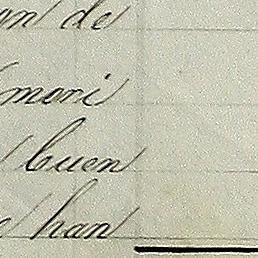 de
mori
buen
han